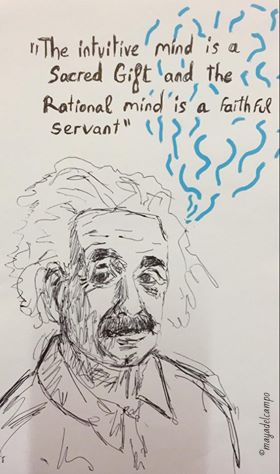 "The intuitive mind is a
Sacred Gift and the
Rational mind is a faithful
servant"
©mayadelcampo